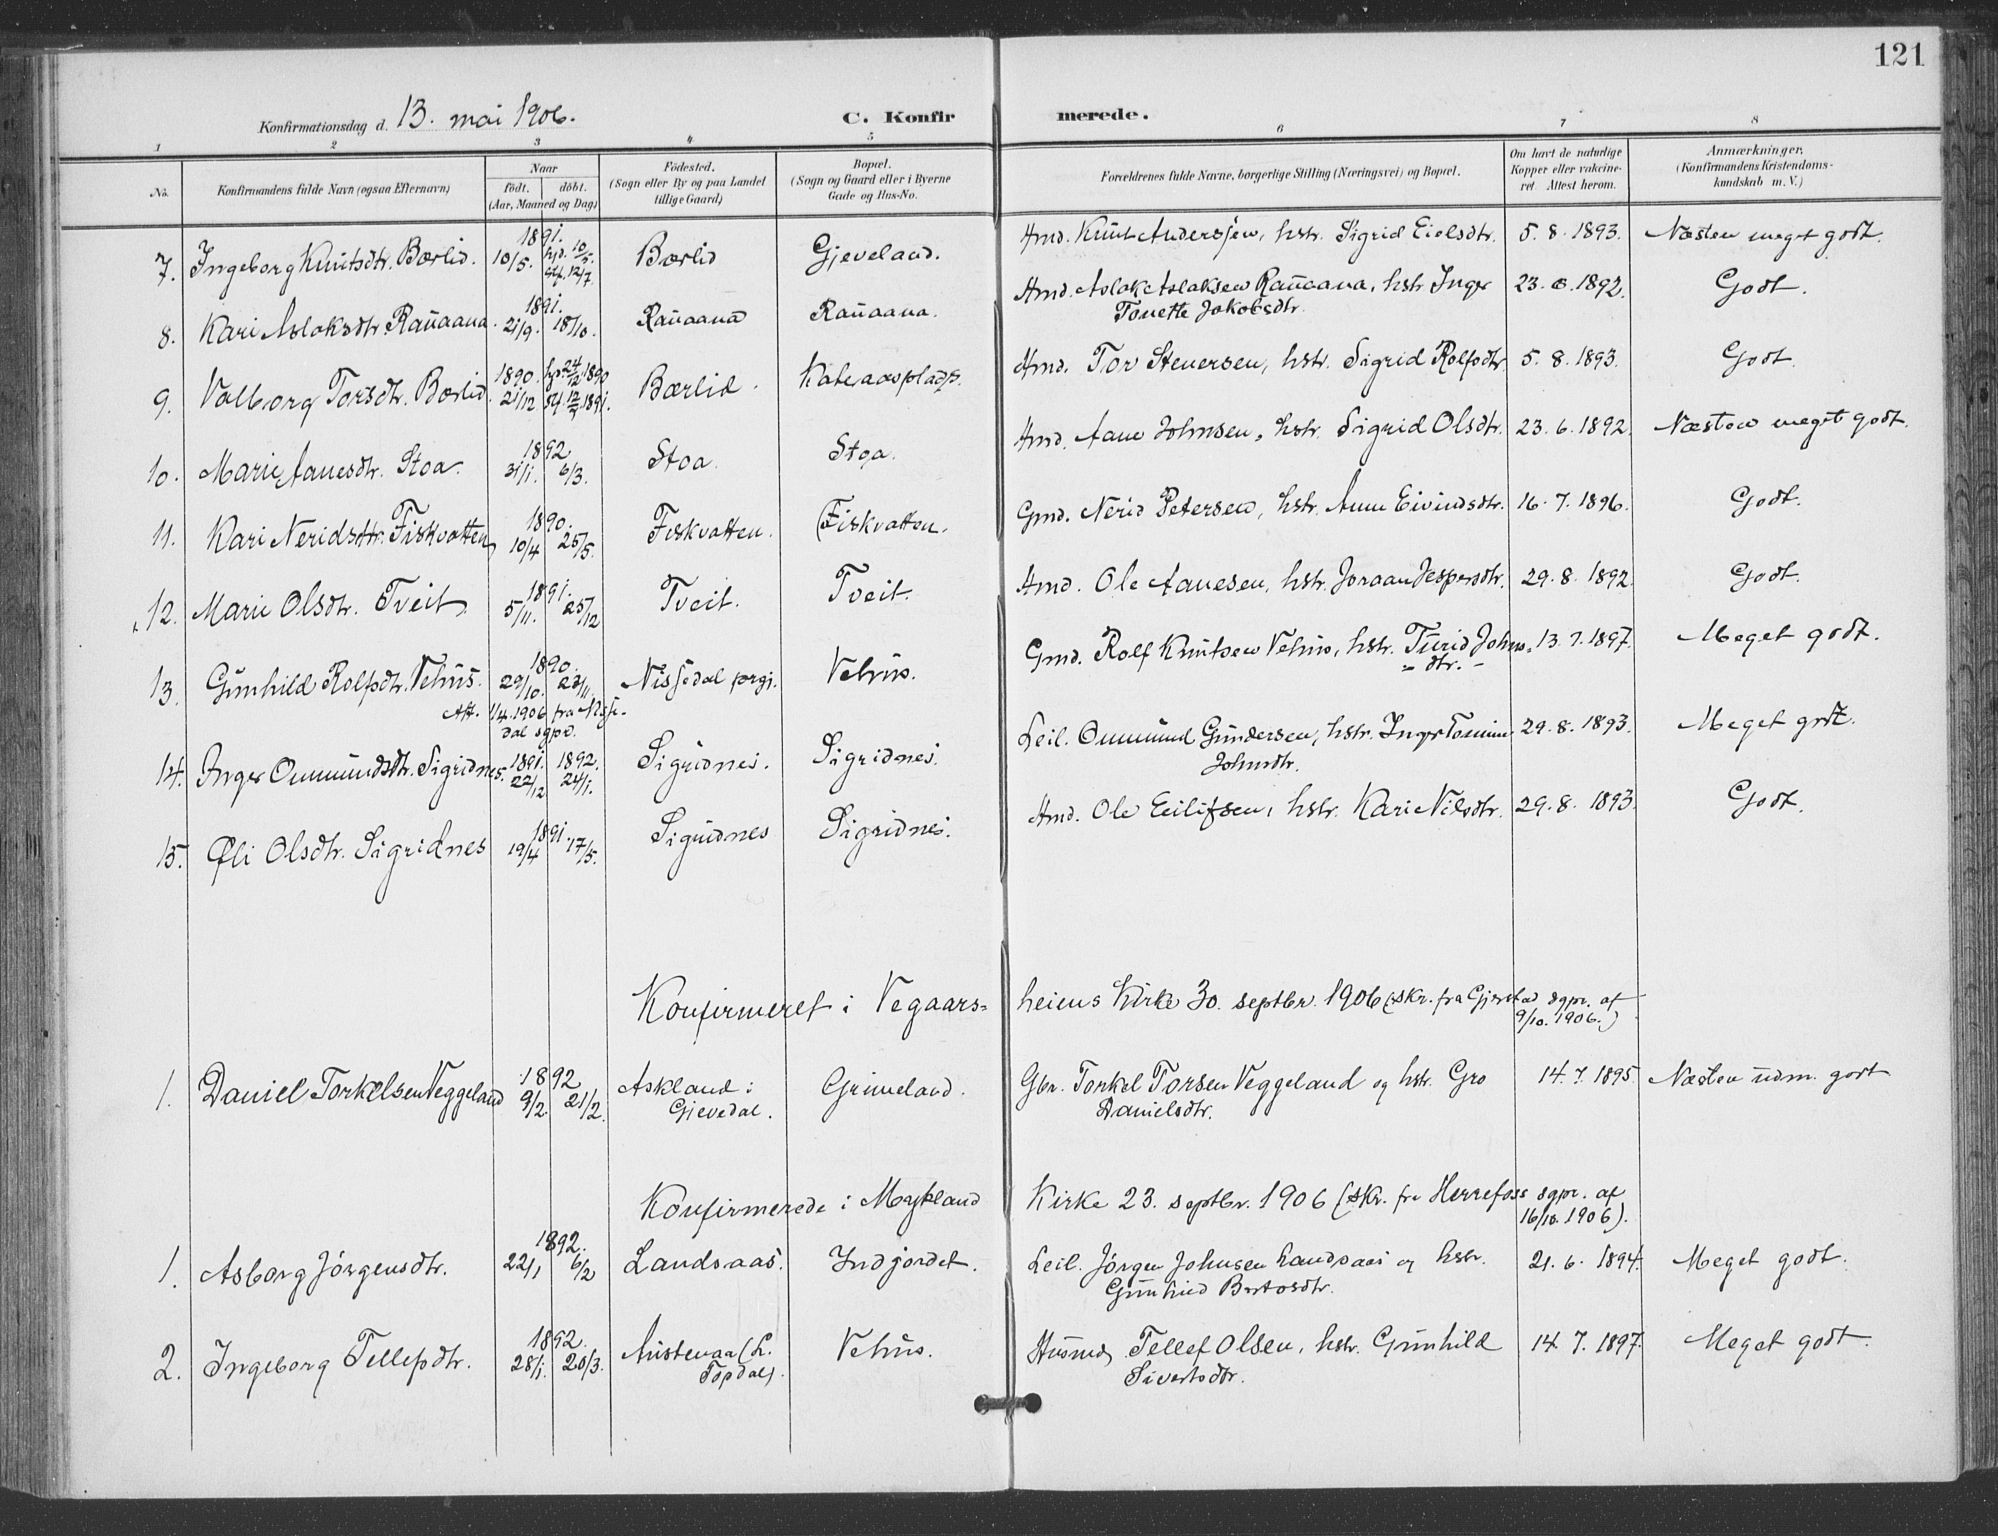 121
Konfirmationsdag d. 13. mai 1906. C. Konfir merede.
1 2 3 4 5 6 7 8
No. Konfirmandens fulde Navn (ogsaa Efternavn) Naar født. døbt. (Aar, Maaned og Dag) Födested. (Sogn eller By og paa Landet tillige Gaard) Bopæl. (Sogn og Gaard eller i Byerne Gade og Hus-No. Forældrenes fulde Navne, borgerlige Stilling (Næringsvei) og Bopæl. Om havt de naturlige Kopper eller vakcineret. Attest herom. Anmærkninger. (Konfirmandens Kristendomskundskab m. V.)
7. Ingeborg Knutsdtr. Bærlid. 1891. 10/5. hjd. 10/5. stf. 12/7 Bærlid Gjeveland. Hmd. Knut Anderssen, hstr. Sigrid Eielsdtr. 5. 8. 1893. Næsten meget godt.
8. Kari Aslaksdtr. Rauaana. 1891. 21/9. 18/10. Rauaana Rauaana. Hmd. Aslak Aslaksen Rauaana, hstr. Inger 23. 8. 1892. Godt.
Tonette Jakobsdtr.
9. Valborg Torsdtr. Bærlid. 1890. 21/12 hjd. 24/12 1890 stf. 12/7 1891. Bærlid. Kateaasplads. Hmd. Tor Stenersen, hstr. Sigrid Rolfsdtr. 5. 8. 1893. Godt.
10. Marie Aanesdtr. Stoa. 1892 31/1. 6/3. Stoa. Stoa. Hmd. Aane Johnsen, hstr. Sigrid Olsdtr. 23. 6. 1892. Næsten meget godt.
11. Kari Neridsdtr. Fiskvatten 1890. 10/4 25/5. Fiskvatten. Fiskvatten. Gmd. Nerid Petersen, hstr. Anne Eivindsdtr. 16. 7. 1896. Godt.
12. Marie Olsdtr. Tveit. 1891. 5/11. 25/12 Tveit. Tveit. Hmd. Ole Aanesen, hstr. Joraan Jespersdtr. 29. 8. 1892. Godt.
13. Gunhild Rolfsdtr. Vehus. 1890. 29/10. 23/11. Nissedal prgj. Vehus. Gmd. Rolf Knutsen Vehus, hstr. Turid Johns- 13. 7. 1897. Meget godt.
- dtr. -
Att. 1/4. 1906 fra Nisse-
dal sgpr.
14. Inger Onmundsdtr. Sigridnes. 1891. 22/12 1892. 24/1. Sigridnes. Sigridnes. Leil. Onmund Gundersen, hstr. Inger Tomine 29. 8. 1893. Meget godt.
Johnsdtr.
15. Øli Olsdtr. Sigridnes 1891. 19/4 17/5. Sigridnes Sigridnes. Hmd. Ole Eilifsen, hstr. Kari Nilsdtr. 29. 8. 1893 Godt.
Konfirmeret i Vegaars- heiens Kirke 30. septbr. 1906 (skr. fra Gjerstad sgpr. af
9/10. 1906.)
1. Daniel Torkelsen Veggeland 1892 9/2 21/2. Askland i Gjevedal. Grimeland. Gbr. Torkel Torsen Veggeland og hstr. Gro 14. 7. 1895. Næsten udm. godt
Danielsdtr.
Konfirmerede i Mykland Kirke 23. septbr. 1906 (skr. fra Herrefoss sgpr. af
16/10. 1906).
1. Asborg Jørgensdtr. 1892. 22/1 6/2 Landsaas. Indjordet. Leil. Jørgen Johnsen Landsaas og hstr. 21. 6. 1894. Meget godt.
Gunhild Bertosdtr.
2. Ingeborg Tellefsdtr. 1892. 28/1. 20/3. Austenaa (L. Topdal). Vehus. Husmd. Tellef Olsen, hstr. Gunhild 14. 7. 1897. Meget godt.
Sivertsdtr.